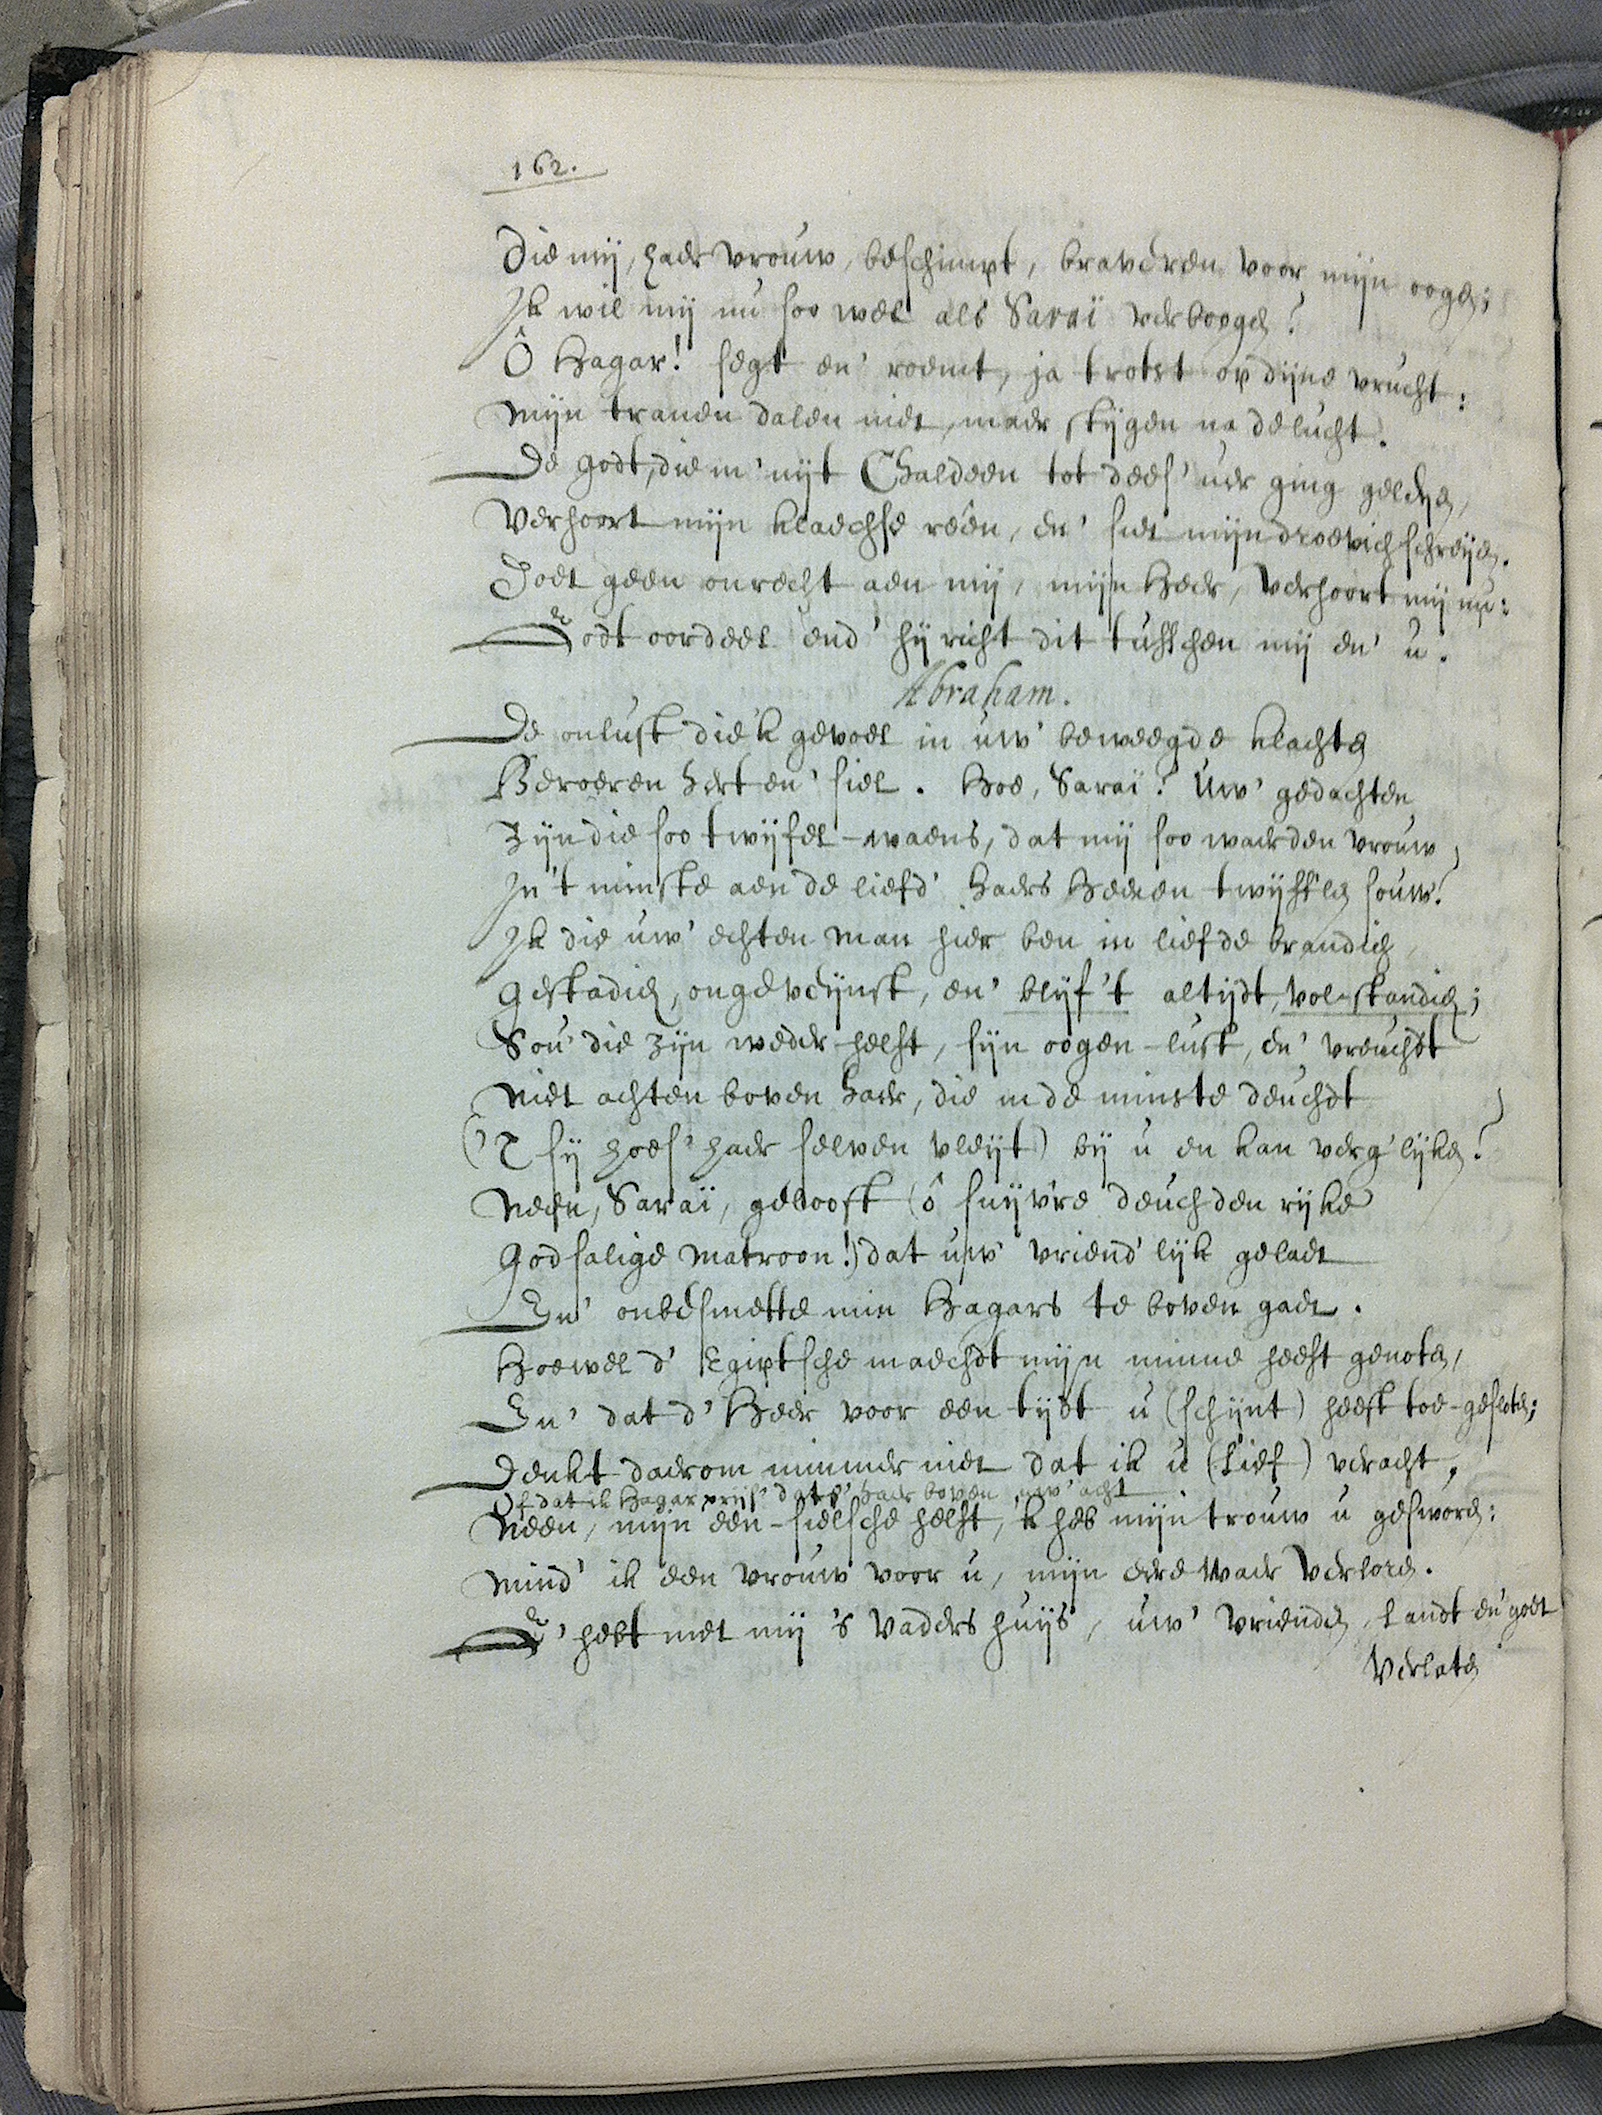 162.
Die mij, haer vrouw, beschimpt, braveren voor mijn oogen;
Ik wil mij nu soo wel als Saraï verhoogen?
Ô Hagar! segt en' roemt, ja trotst op dijne vrucht:
Mijn tranen dalen niet, maer stijgen na de lucht.
De Godt, die m' uijt Chaldeen tot dees' uer ging geleijen,
Verhoort mijn klaechse reên, en' siet mijn droevich schreijen.
Doet geen onrecht aen mij, mijn Heer, verhoort mij nu:
Godt oordeel end' hij richt dit tusschen mij en' u.
Abraham.
De onlust die'k gevoel in uw' beweegde klachten
Beroeren hert en' siel. Hoe, Saraï? Uw' gedachten
Zijn die soo twijfel-waens, dat mij soo waerden vrouw,
In't minste aen de liefd' haers Heeren twijff'len souw?
Ik die uw' echten man hier ben in liefde brandich,
Gestadich, ongeveijnst, en' blijf't altijdt, vol-standich;
Sou' die zijn weder-helft, sijn oogen-lust, en' vreuchdt
Niet achten boven haer, die in de minste deuchdt
('T sij hoes' haer selven vleijt) bij u en kan verg'lijken?
Neen, Saraï, gelooft (ô suijv're deuchden rijke
Godsalige Matroon!) dat uw' vriend'lijk gelaet
En' onbesmette min Hagars te boven gaet.
Hoewel d' Egiptsche maechdt mijn minne heeft genoten,
En' dat d' Heer voor een tijdt u (schijnt) heeft toe-gesloten;
Denkt daerom nimmer niet dat ik u (Lief) veracht,
Of dat ik Hagar prijs' dats' haer boven uw' acht
Neen, mijn een-sielsche helft, 'k heb mijn trouw u gesworen:
Mind' ik een vrouw voor u, mijn eere waer verloren.
G' hebt met mij 's Vaders huijs, uw' vrienden, Landt en' goet
Verlaten